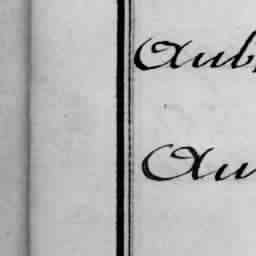 Aub
Au